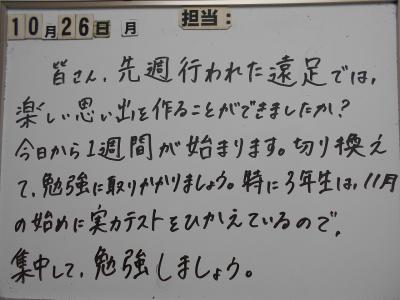 10月26日 月 担当:
皆さん、先週行われた遠足では、
楽しい思い出を作ることができましたか?
今日から1週間が始まります。切り換え
て、勉強に取りかかりましょう。特に3年生は、11月
の始めに実力テストをひかえているので、
集中して、勉強しましょう。